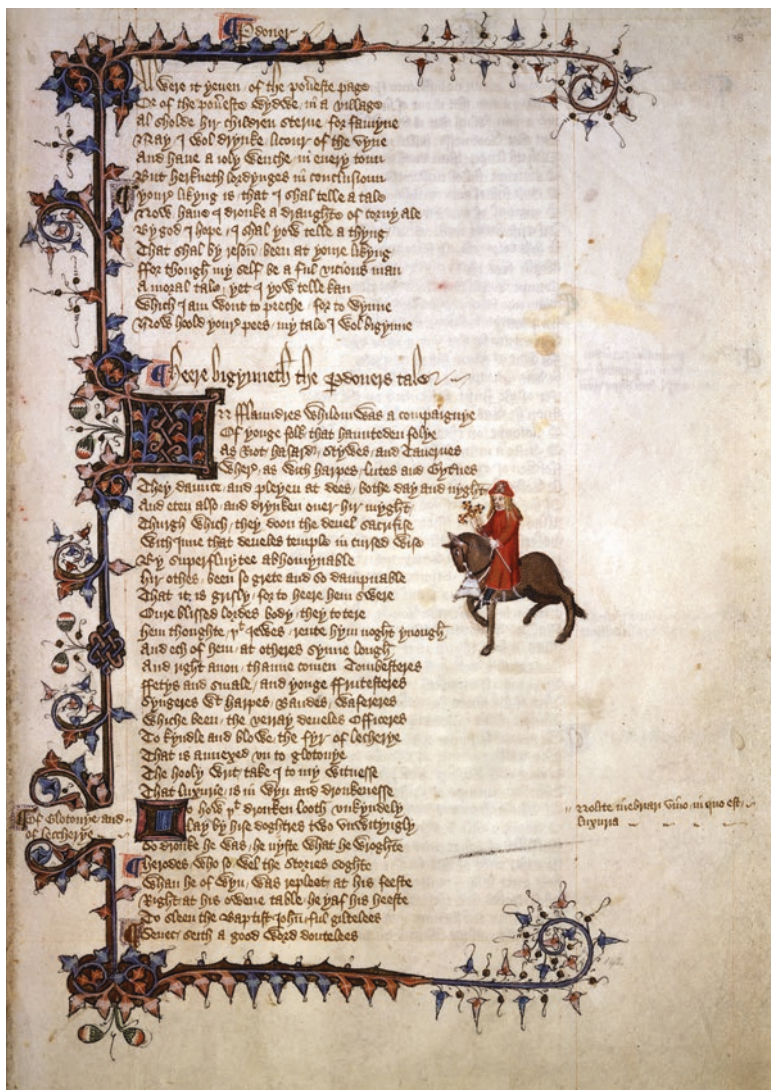 ¶ Pdoner
Al were it yeuen of the pouereste page
Or of the pouereste wydwe in a village
Al sholde hir children sterue for famyne
Nay I wol drynke licour of the vyne
And haue a ioly wenche in euery toun
But herkneth lordynges in conclusioun
Youre likyng is that I shal telle a tale
Now haue I dronke a draughte of corny ale
By god I hope I shal yow telle a thyng
That shal by reson been at youre likyng
ffor though my self be a ful vicious man
A moral tale yet I yow telle kan
Which I am wont to preche for to wynne
Now hoold youre pees my tale I wol bigynne
¶ Heere bigynneth the Pdoners tale
IN fflaundres whilom was a compaignye
Of yonge folk that haunteden folye
As Riot hasard stywes and Tauernes
Where as with harpes lutes and Gyternes
They daunce and pleyen at dees bothe day and nyght
And eten also and drynken ouer hir myght
Thurgh which they doon the deuel sacrifise
With Inne that deueles temple in cursed wise
By superfluytee abhomynable
Hir othes been so grete and so dampnable
That it is grisly for to heere hem swere
Oure blissed lordes body they to tere
Hem thoughte yt Iewes rente hym noght ynough
And ech of hem at otheres synne lough
And right anon thanne comen Tombesteres
ffetys and smale and yonge ffrutesteres
Syngeres wt harpes Baudes wafereres
Whiche been the verray deueles Officeres
To kyndle and blowe the fyr of lecherye
That is annexed vn to glotonye
The hooly writ take I to my witnesse
That luxurie is in wyn and dronkenesse
Lo how yt dronken looth vnkyndely
Lay by hise doghtres two vnwityngly
So dronke he was he nyste what he wroghte
¶ Herodes who so wel the stories soghte
Whan he of wyn was repleet at his feeste
Right at his owene table he yaf his heeste
To sleen the Baptist Iohn ful giltelees
¶ Senec seith a good word doutelees
¶ Of Glotonye and
of leccherye
Nolite inebriari vino in quo est
luxuria